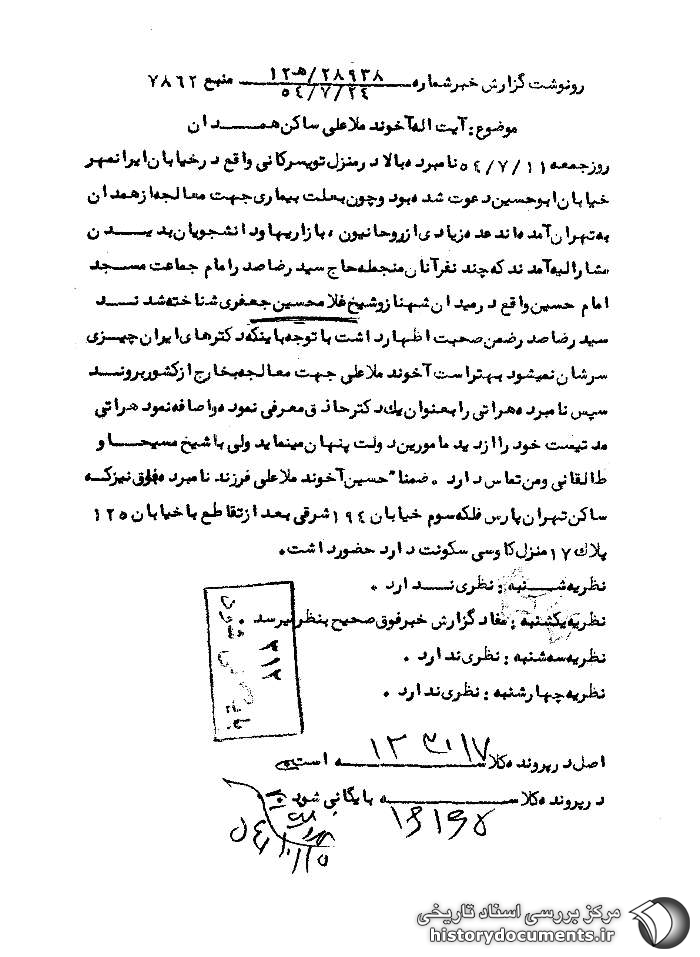 رونوشت گزارش خبر شماره ۲۸۹۳۸/ه‍۱۲ منبع ۷۸۶۲
۵۴/۷/۲۴
موضوع: آیت اله آخوند ملاعلی ساکن همدان
روز جمعه ۵۴/۷/۱۱ نامبرده بالا در منزل تویسرکانی واقع در خیابان ایرانمهر
خیابان ابوحسین دعوت شده بود و چون بعلت بیماری جهت معالجه از همدان
به تهران آمده اند عده زیادی از روحانیون، بازاریها و دانشجویان بدیدن
مشارالیه آمدند که چند نفر آنان منجمله حاج سید رضا صدر امام جماعت مسجد
امام حسین واقع در میدان شهناز و شیخ غلامحسین جعفری شناخته شدند
سید رضا صدر ضمن صحبت اظهار داشت با توجه باینکه دکترهای ایران چیزی
سرشان نمیشود بهتر است آخوند ملاعلی جهت معالجه بخارج از کشور بروند
سپس نامبرده هراتی را بعنوان یك دکتر حاذق معرفی نموده و اضافه نمود هراتی
مدتیست خود را از دید مامورین دولت پنهان مینماید ولی با شیخ مسیحا و
طالقانی و من تماس دارد. ضمنا" حسین آخوند ملاعلی فرزند نامبرده فوق نیز که
ساکن تهران پارس فلکه سوم خیابان ۱۹۴ شرقی بعد از تقاطع با خیابان ۱۲۵
پلاك ۱۷ منزل کاوسی سکونت دارد حضور داشت.
نظریه شنبه: نظری ندارد.
نظریه یکشنبه: مفاد گزارش خبر فوق صحیح بنظر میرسد.
نظریه سه شنبه: نظری ندارد.
نظریه چهارشنبه: نظری ندارد.
۳۱۲
اصل در پرونده کلا است
در پرونده کلا بایگانی شود
مرکز بررسی اسناد تاریخی
historydocuments.ir